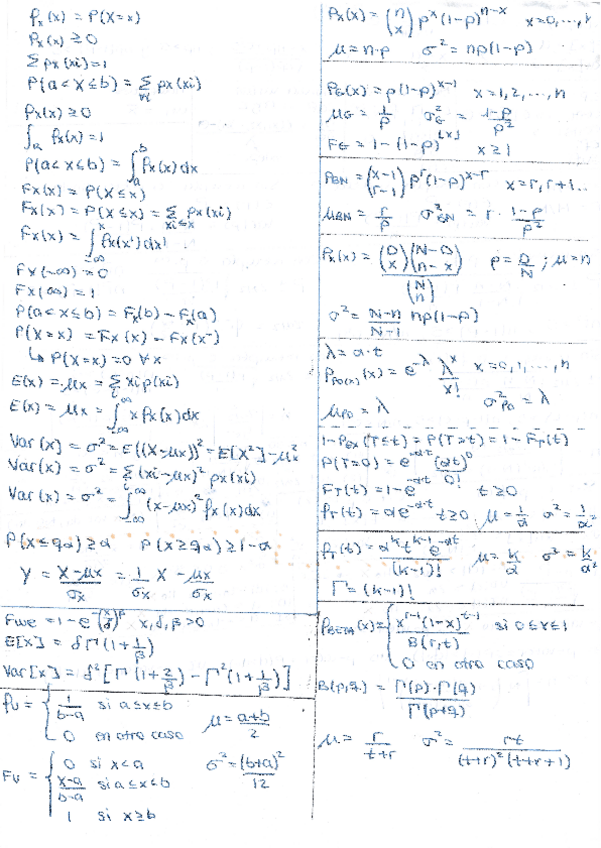 p_x(x) = P(X=x)
p_x(x) ≥ 0
Σ p_x(xi) = 1
P(a < X ≤ b) = Σ p_x(xi)
p_x(x) ≥ 0
∫_a f_x(x) = 1
P(a < X ≤ b) = ∫_a^b f_x(x) dx
F_x(x) = P(X ≤ x)
F_x(x) = P(X ≤ x) = Σ_{xi≤x} p_x(xi)
F_x(x) = ∫_{-∞}^x f_x(x') dx'
F_x(-∞) = 0
F_x(∞) = 1
P(a < X ≤ b) = F_x(b) - F_x(a)
P(X=x) = F_x(x) - F_x(x⁻)
↳ P(X=x) = 0 ∀x
E(x) = μx = Σ_i xi p(xi)
E(x) = μx = ∫_{-∞}^∞ x f_x(x) dx
Var(x) = σ² = E((X-μx))² = E[X²] - μx²
Var(x) = σ² = Σ_i (xi-μx)² p_x(xi)
Var(x) = σ² = ∫_{-∞}^∞ (x-μx)² f_x(x) dx
P(X ≤ qα) ≥ α P(X ≥ qα) ≥ 1-α
Y = (X-μx)/σx = 1/σx X - μx/σx
Fwe = 1 - e^{-(x/δ)^β} x, δ, β > 0
E[x] = δ Γ(1 + 1/β)
Var[x] = δ² [Γ(1 + 2/β) - Γ²(1 + 1/β)]
f_U = { 1/(b-a) si a ≤ x ≤ b
0 en otro caso μ = (a+b)/2
F_U = { 0 si x < a σ² = (b+a)²/12
(x-a)/(b-a) si a ≤ x < b
1 si x ≥ b
P_x(x) = (n x) p^x (1-p)^{n-x} x=0,...,
μ = n·p σ² = np(1-p)
P_G(x) = p(1-p)^{x-1} x = 1, 2, ..., n
μ_G = 1/p σ²_G = (1-p)/p²
F_G = 1 - (1-p)^{⌊x⌋} x ≥ 1
P_BN = (x-1 r-1) p^r (1-p)^{x-r} x = r, r+1...
μ_BN = r/p σ²_BN = r · (1-p)/p²
P_x(x) = (D x)(N-D n-x)/(N n) p = D/N ; μ = n
σ² = (N-n)/(N-1) np(1-p)
λ = α·t
P_PO(x) (x) = e^{-λ} λ^x/x! x = 0, 1, ..., n
μ_PO = λ σ²_PO = λ
1 - P_ex(T ≤ t) = P(T=t) = 1 - F_T(t)
P(T=0) = e^{-αt} (αt)^0/0!
F_T(t) = 1 - e^{-α·t} t ≥ 0
f_T(t) = αe^{-αt} t ≥ 0 μ = 1/α σ² = 1/α²
f_T(t) = α^k t^{k-1} e^{-αt}/(k-1)! μ = k/α σ² = k/α²
Γ = (k-1)!
P_BETA(x) = { x^{r-1} (1-x)^{t-1}/B(r,t) si 0 ≤ x ≤ 1
0 en otro caso
B(p,q) = Γ(p)·Γ(q)/Γ(p+q)
μ = r/(t+r) σ² = rt/((t+r)²(t+r+1))